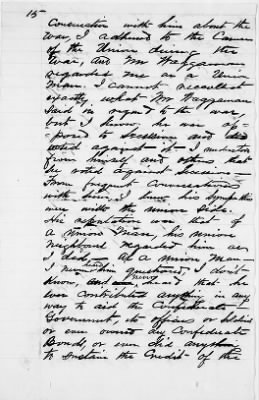 15
Conversation with him about the
War, I adhered to the Cause
of the Union during the
War, and Mr Waggaman
regarded me as a Union
Man. I cannot recollect
exactly, what Mr Waggaman
said in regard to the war,
but I know he was op-
posed to Secession and
voted against it - I understood
from himself and others, that
he voted against Secession -
From frequent Conversations
with him, I know his sympathies
were with the Union Side.
His reputation was that of
a Union Man, his Union
Neighbours regarded him as
I did, as a Union Man -
I never heard him questioned, I don't
Know, and never heard that he
ever contributed anything in any
way to aid the Confederate
Government, its officers or Soldiers
or ever owned any Confederate
Bonds, or ever did anything
to sustain the Credit of the